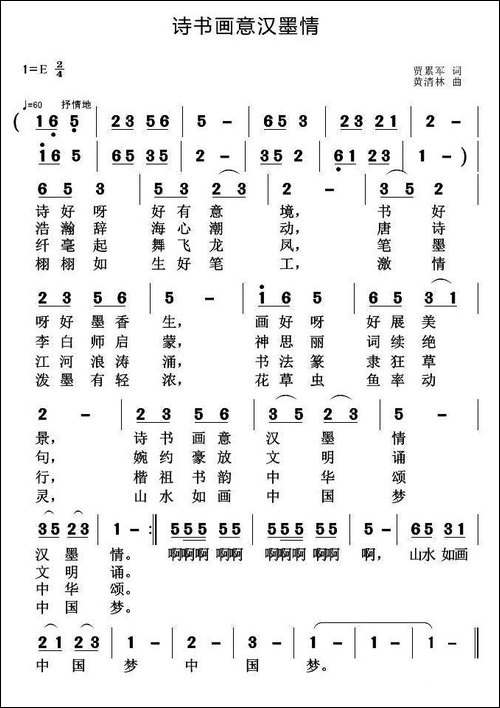 诗书画意汉墨情
1=E 2/4
贾累军 词
黄清林 曲
♩=60 抒情地
( 1 6 5 | 2 3 5 6 | 5 - | 6 5 3 | 2 3 2 1 | 2 - |
1 6 5 | 6 5 3 5 | 2 - | 3 5 2 | 6 1 2 3 | 1 - ) |
6 5 3 | 3 5 2 3 | 2 - | 3 5 2 |
诗好呀 好有意 境, 书好
浩瀚辞 海心潮 动, 唐诗
纤毫起 舞飞龙 凤, 笔墨
栩栩如 生好笔 工, 激情
2 3 5 6 | 5 - | 1 6 5 | 3 5 3 1 |
呀好墨香 生, 画好呀 好展美
李白师启 蒙, 神思丽 词续绝
江河浪涛 涌, 书法篆 隶狂草
泼墨有轻 浓, 花草虫 鱼率动
2 - | 2 3 5 6 | 3 5 2 3 | 5 - |
景, 诗书画意 汉墨 情
句, 婉约豪放 文明 诵
行, 楷祖书韵 中华 颂
灵, 山水如画 中国 梦
3 5 2 3 | 1 - :‖ 555 55 | 555 55 | 5 - | 65 31 |
汉墨 情。 啊啊啊 啊啊 啊啊啊 啊啊 啊, 山水 如画
文明 诵。
中华 颂。
中国 梦。
2 1 2 3 | 1 - | 2 3 | 5 - | 1 - | 1 - | 1 - ‖
中国 梦 中国 梦。